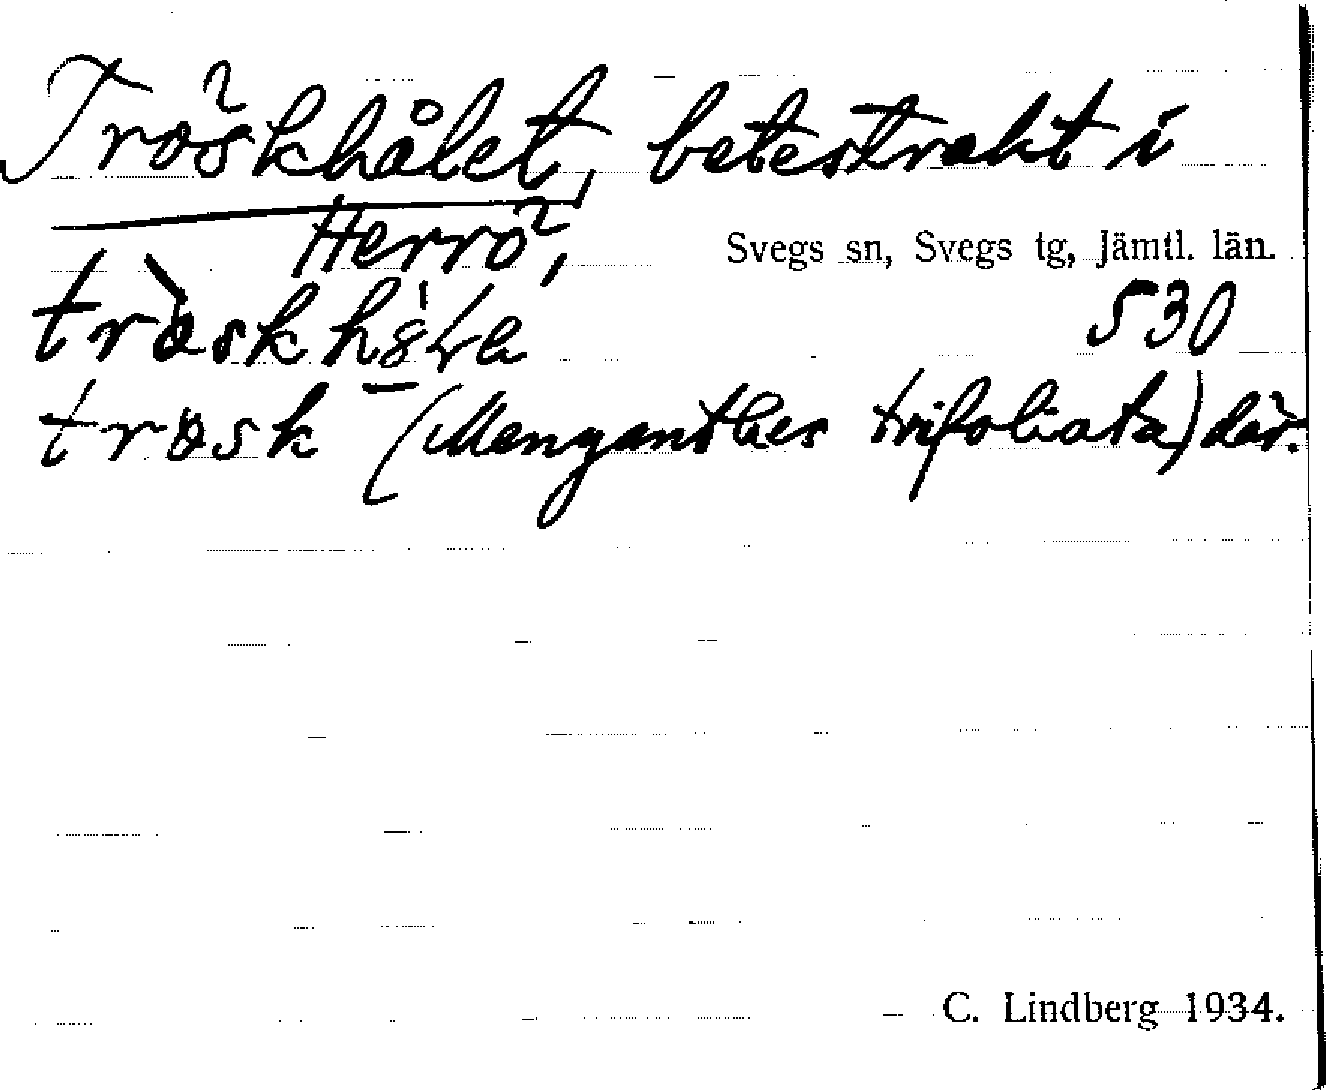 Tröskhålet, betestrakt i
Herrö,
Svegs sn, Svegs tg, Jämtl. län.
530
trosk (Menyanthes trifoliata) där.
C. Lindberg 1934.